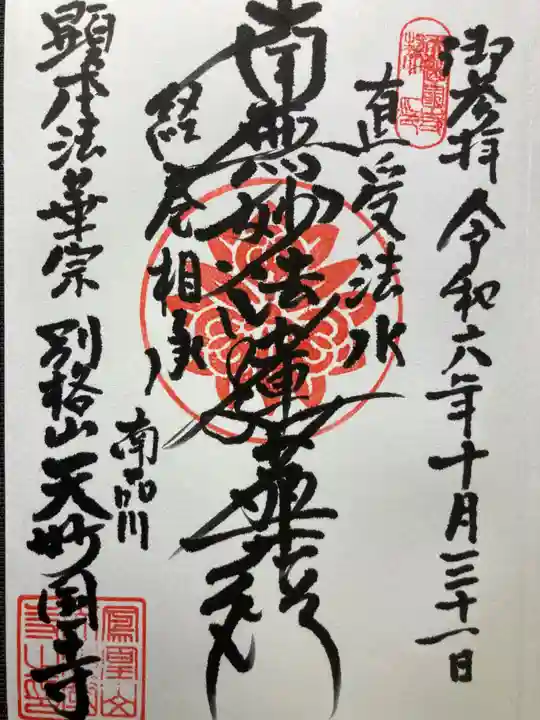 御参拝 令和六年十月三十一日
直受法水
南無妙法蓮華経
経巻相承
南品川
顕本法華宗 別格山天妙国寺
鳳凰山